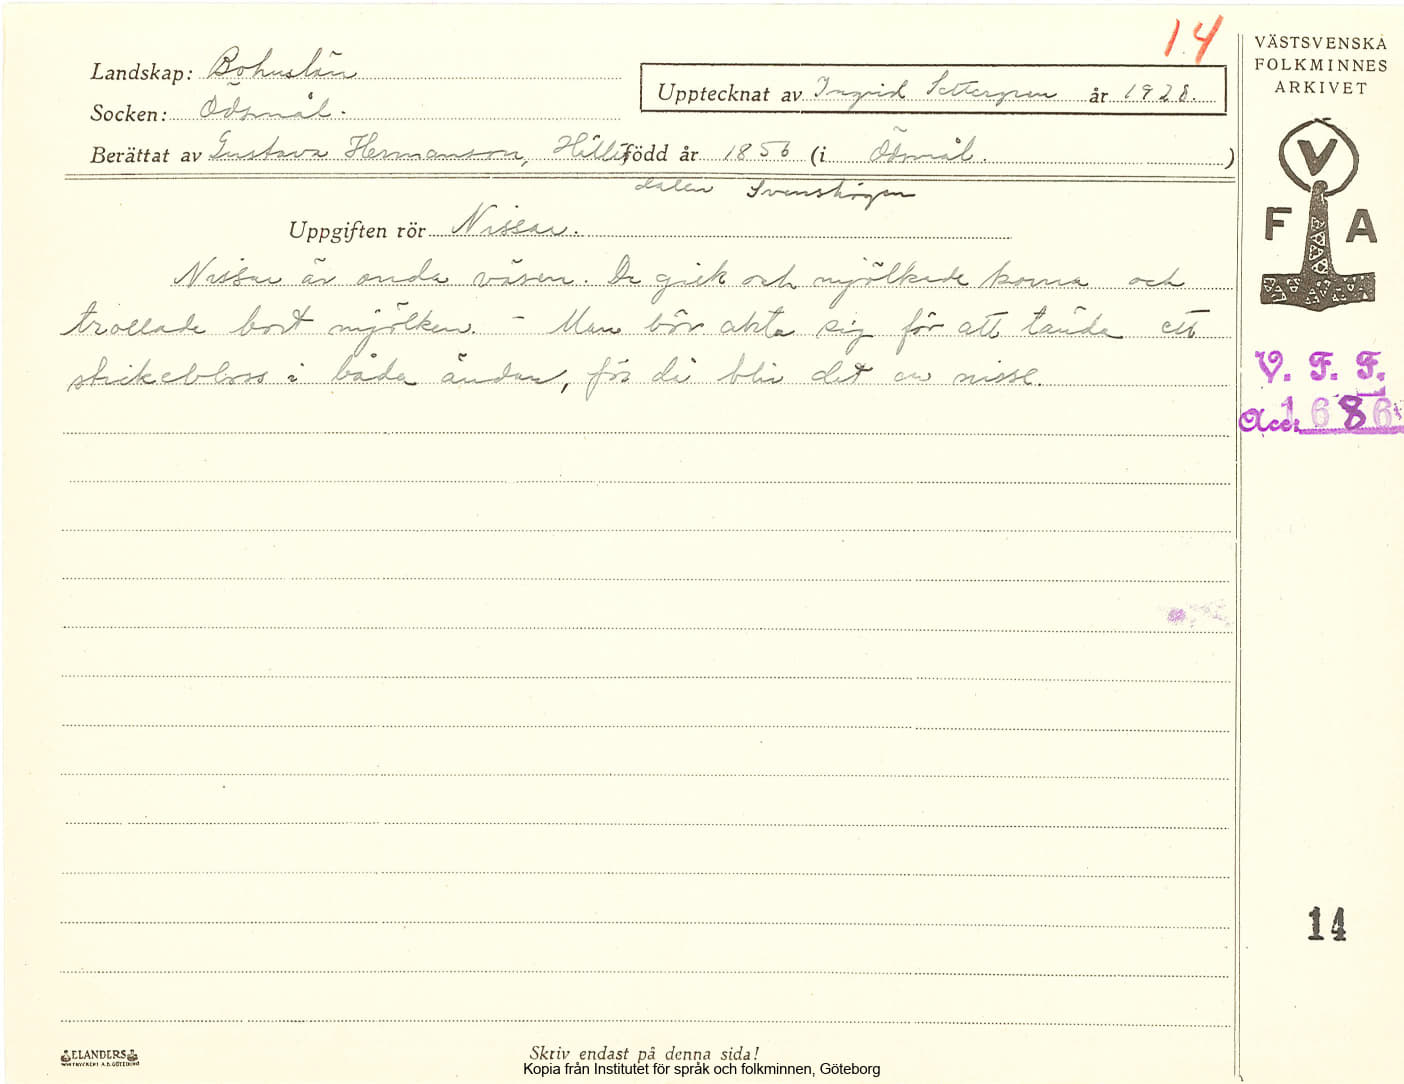 14
VÄSTSVENSKA
FOLKMINNES
ARKIVET
Landskap: Bohuslän
Upptecknat av Ingrid Settergren år 1928.
Socken: Ödsmål.
Berättat av Gustava Hermanson, född år 1856 (i Ödsmål.)
dalen Svenshögen
V
F A
Uppgiften rör Nissar.
Nissar är onda väsen. De gick och mjölkade korna och
trollade bort mjölken. – Man bör akta sig för att tända ett
stickebloss i båda ändar, för då blir det en nisse.
V. F. F.
Acc. 1686
14
ELANDERS
Skriv endast på denna sida!
Kopia från Institutet för språk och folkminnen, Göteborg